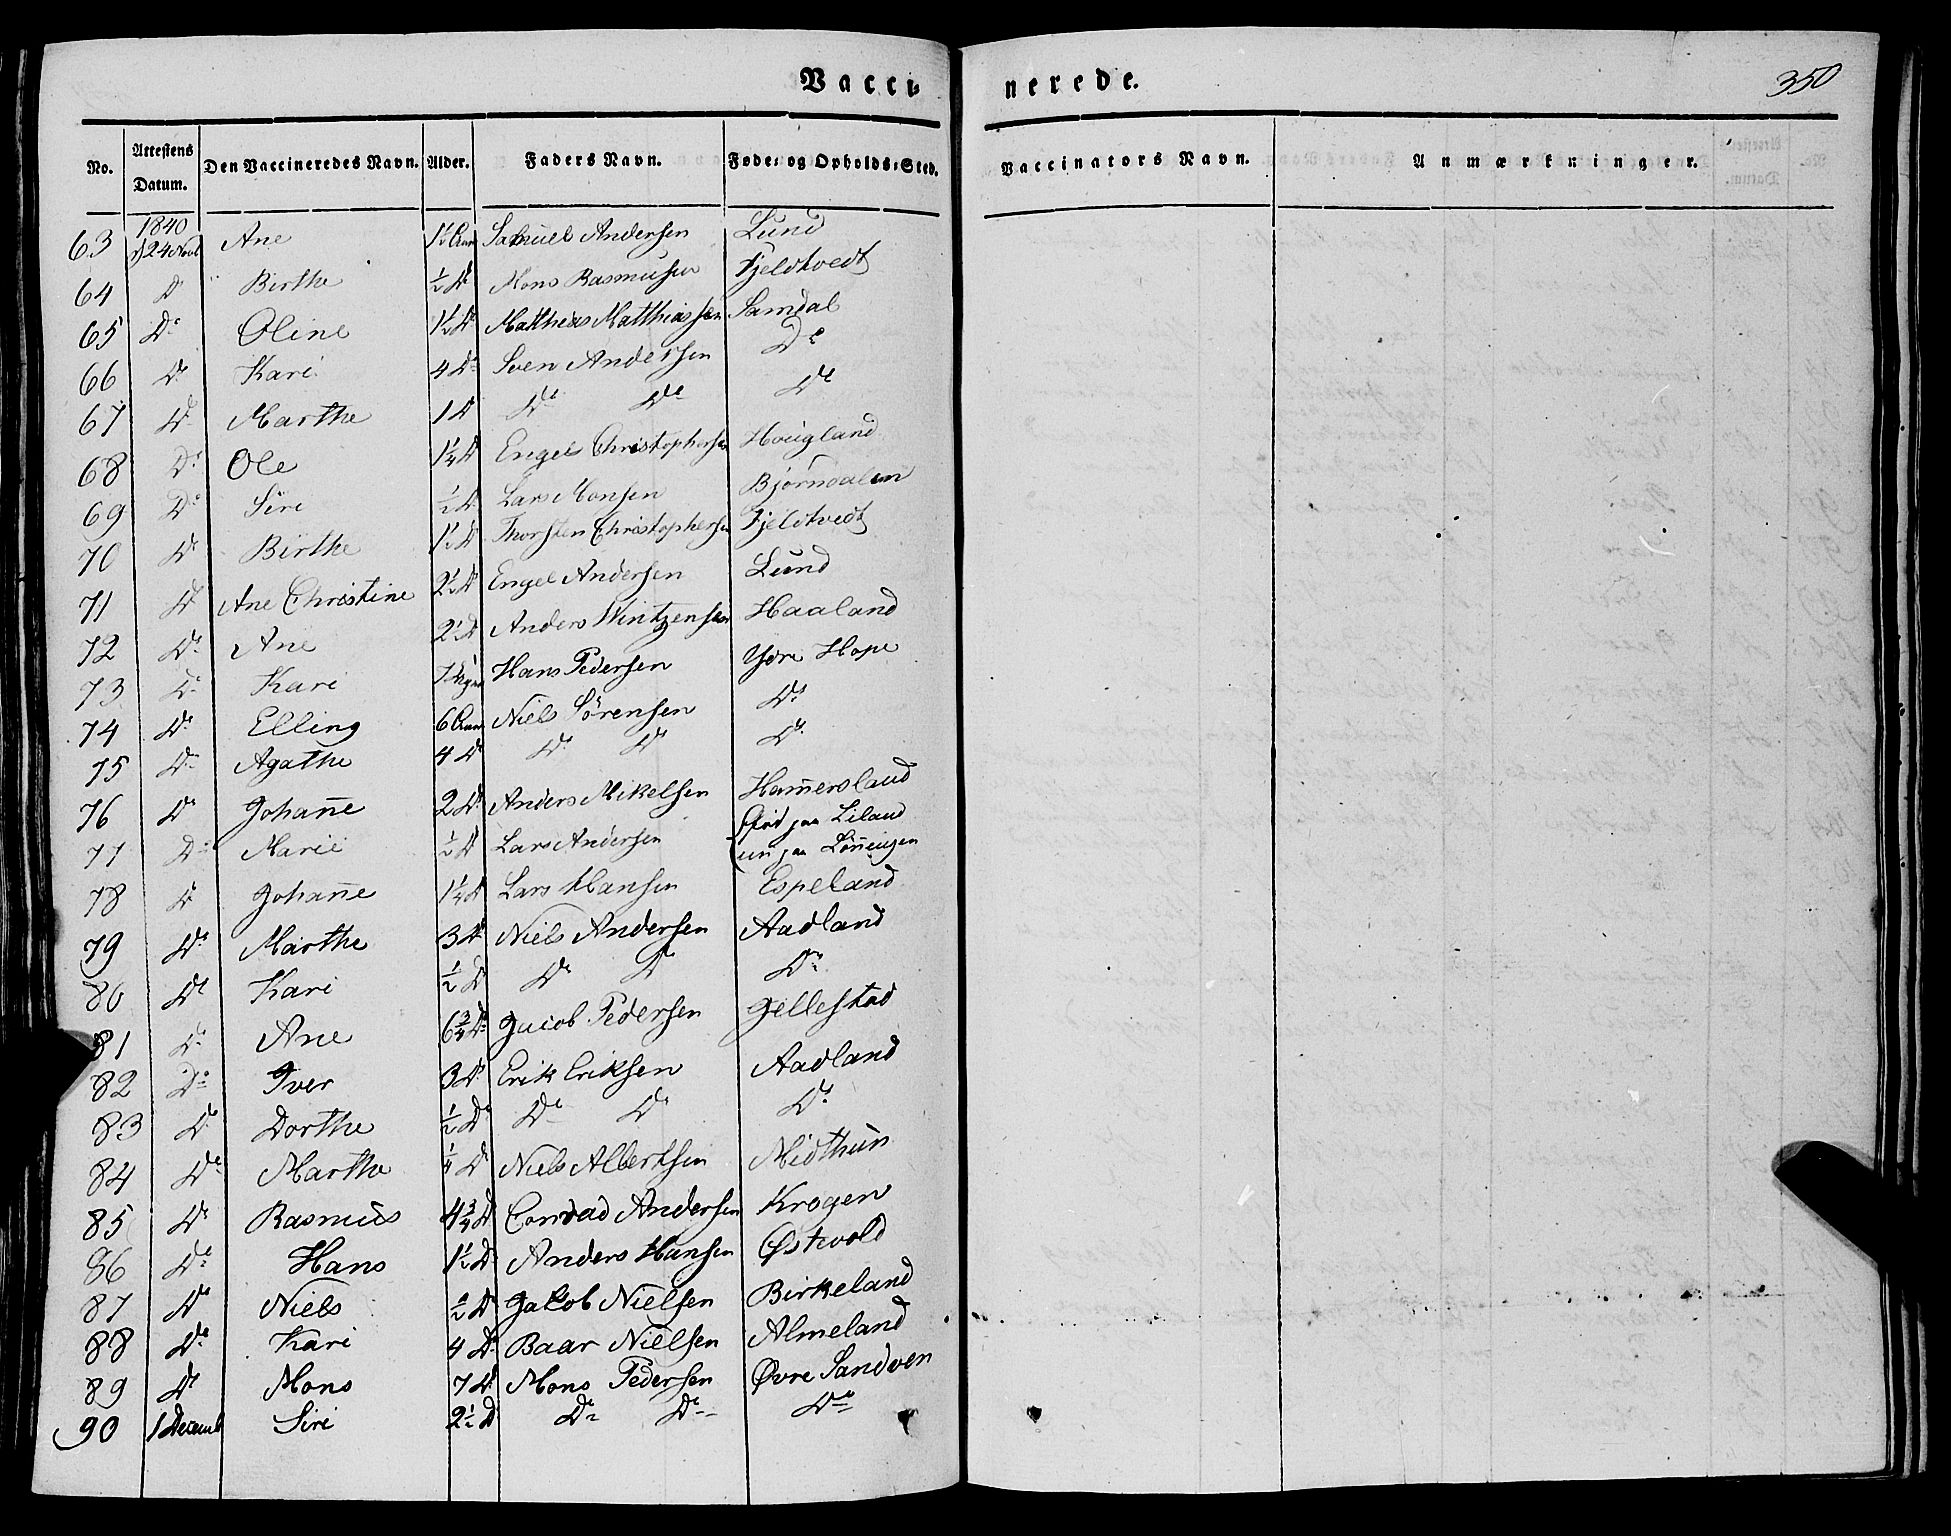 Vacci-
nerede.
350
No. Attestens Datum. Den Vaccineredes Navn. Alder. Faders Navn. Føde- og Opholds-Sted.
Vaccinators Navn. Anmærkninger.
1840
63 24 Novb Ane 1½ Samuel Andersen Lund
64 D Birthe ½ D Mons Rasmusen Fjeldtvedt
65 Do Oline 1½ D Mathias Matthiassen Samdal
66 Do Kari 4 Do Sven Andersen Do
67 Do Marthe 1 D Do Do Do
68 Do Ole 1¼ D Engel Christophersen Hougland
69 Do Siri ½ D Lars Monsen Bjørndalen
70 Do Birthe 1½ D Thorsten Christophersen Fjeldtvedt
71 Do Ane Christine 2½ D Engel Andersen Lund
72 Do Ane 2½ D Anders Wintzensen Haaland
73 Do Kari Hans Pedersen Ydre Hope
74 Do Elling 6 Niels Sörensen Do
75 Do Agathe 4 D Do Do Do
76 Do Johan̄e 2 D Anders Mikelsen Ham̄ersland
77 Do Marie ½ D Lars Andersen Född paa Liland
nu paa Løn̄ingen
78 D Johan̄e 1¼ D Lars Hansen Espeland
79 Do Marthe 3 D Niels Andersen Aadland
80 Do Kari ½ D Do Do Do
81 Do Ane 6¾ Do Jacob Pedersen Gellestad
82 Do Iver 3 D Erik Eriksen Aadland
83 Do Dorthe ½ D Do Do Do
84 Do Marthe ¼ D Niels Albertsen Midthun
85 Do Rasmus 4¾ D Conrad Andersen Krogen
86 Do Hans 1½ D Anders Hansen Østevold
87 Do Niels ½ D Jakob Nielsen Birkeland
88 Do Kari 4 D Baar Nielsen Almeland
89 Do Mons 7 D Mons Pedersen Øvre Sandven
90 1 Decemb Siri 2½ D Do Do Do